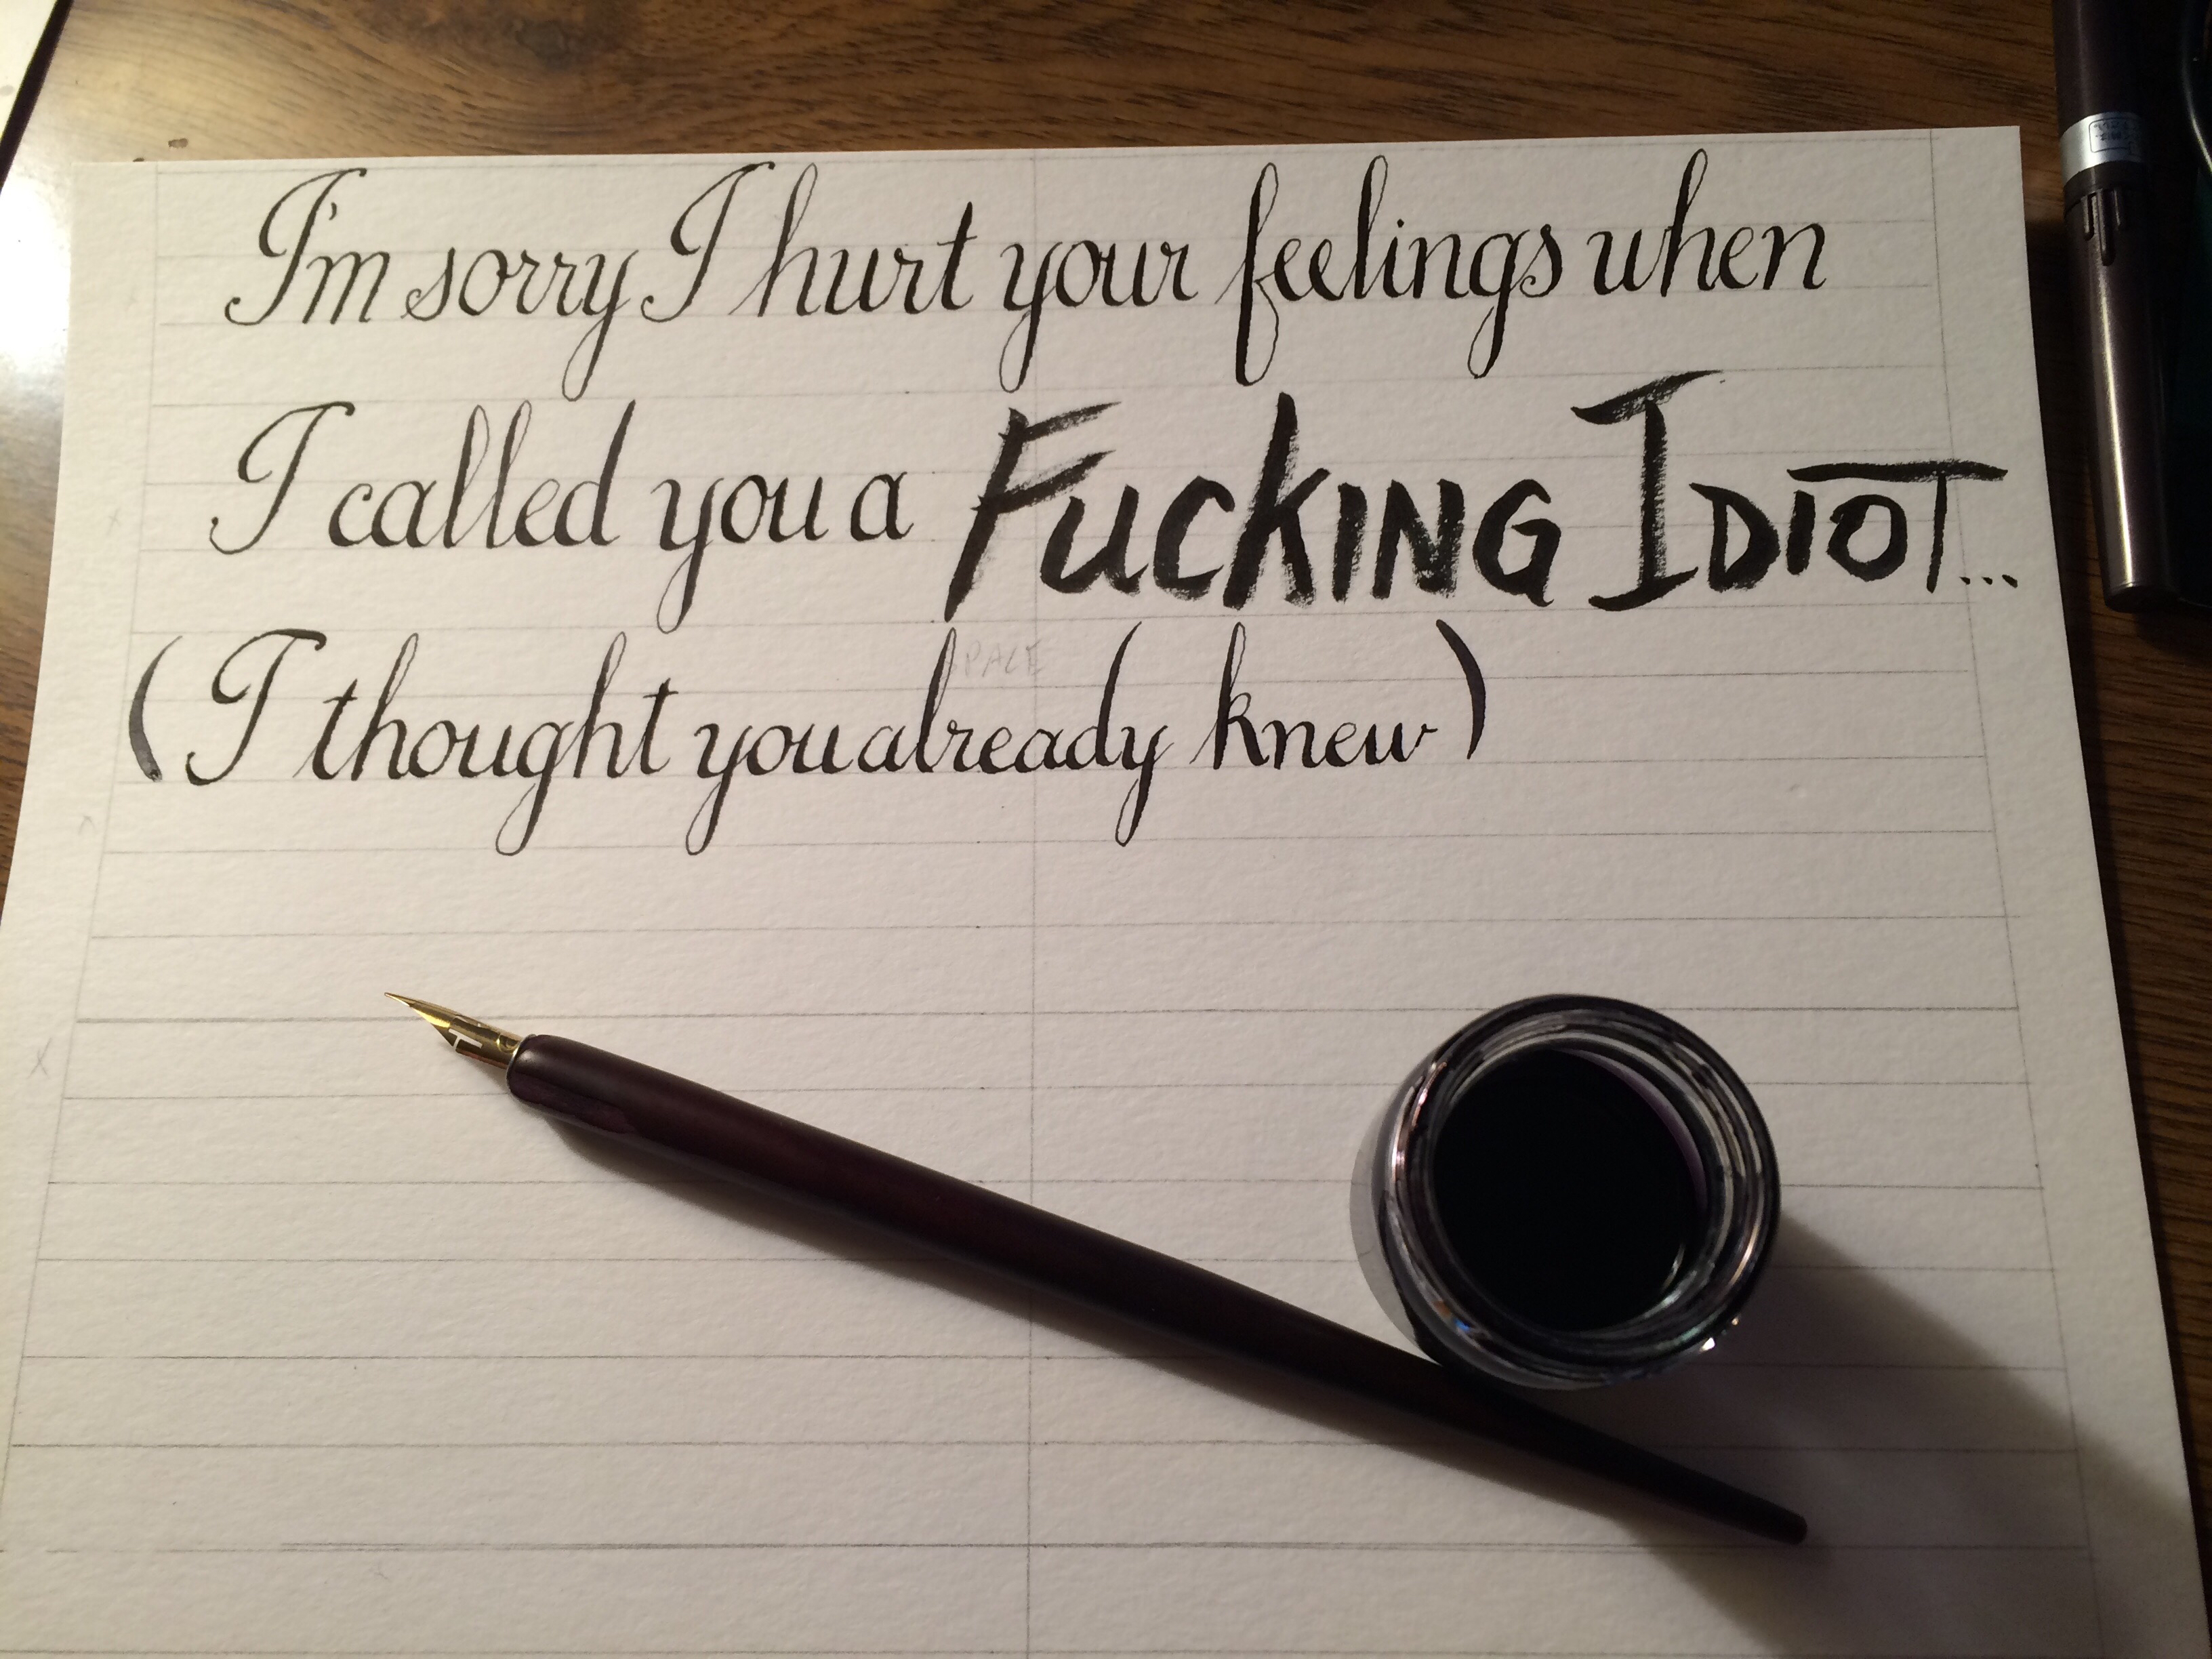 I'm sorry I hurt your feelings when
I called you a FUCKING IDIOT...
SPACE
(I thought you already knew)